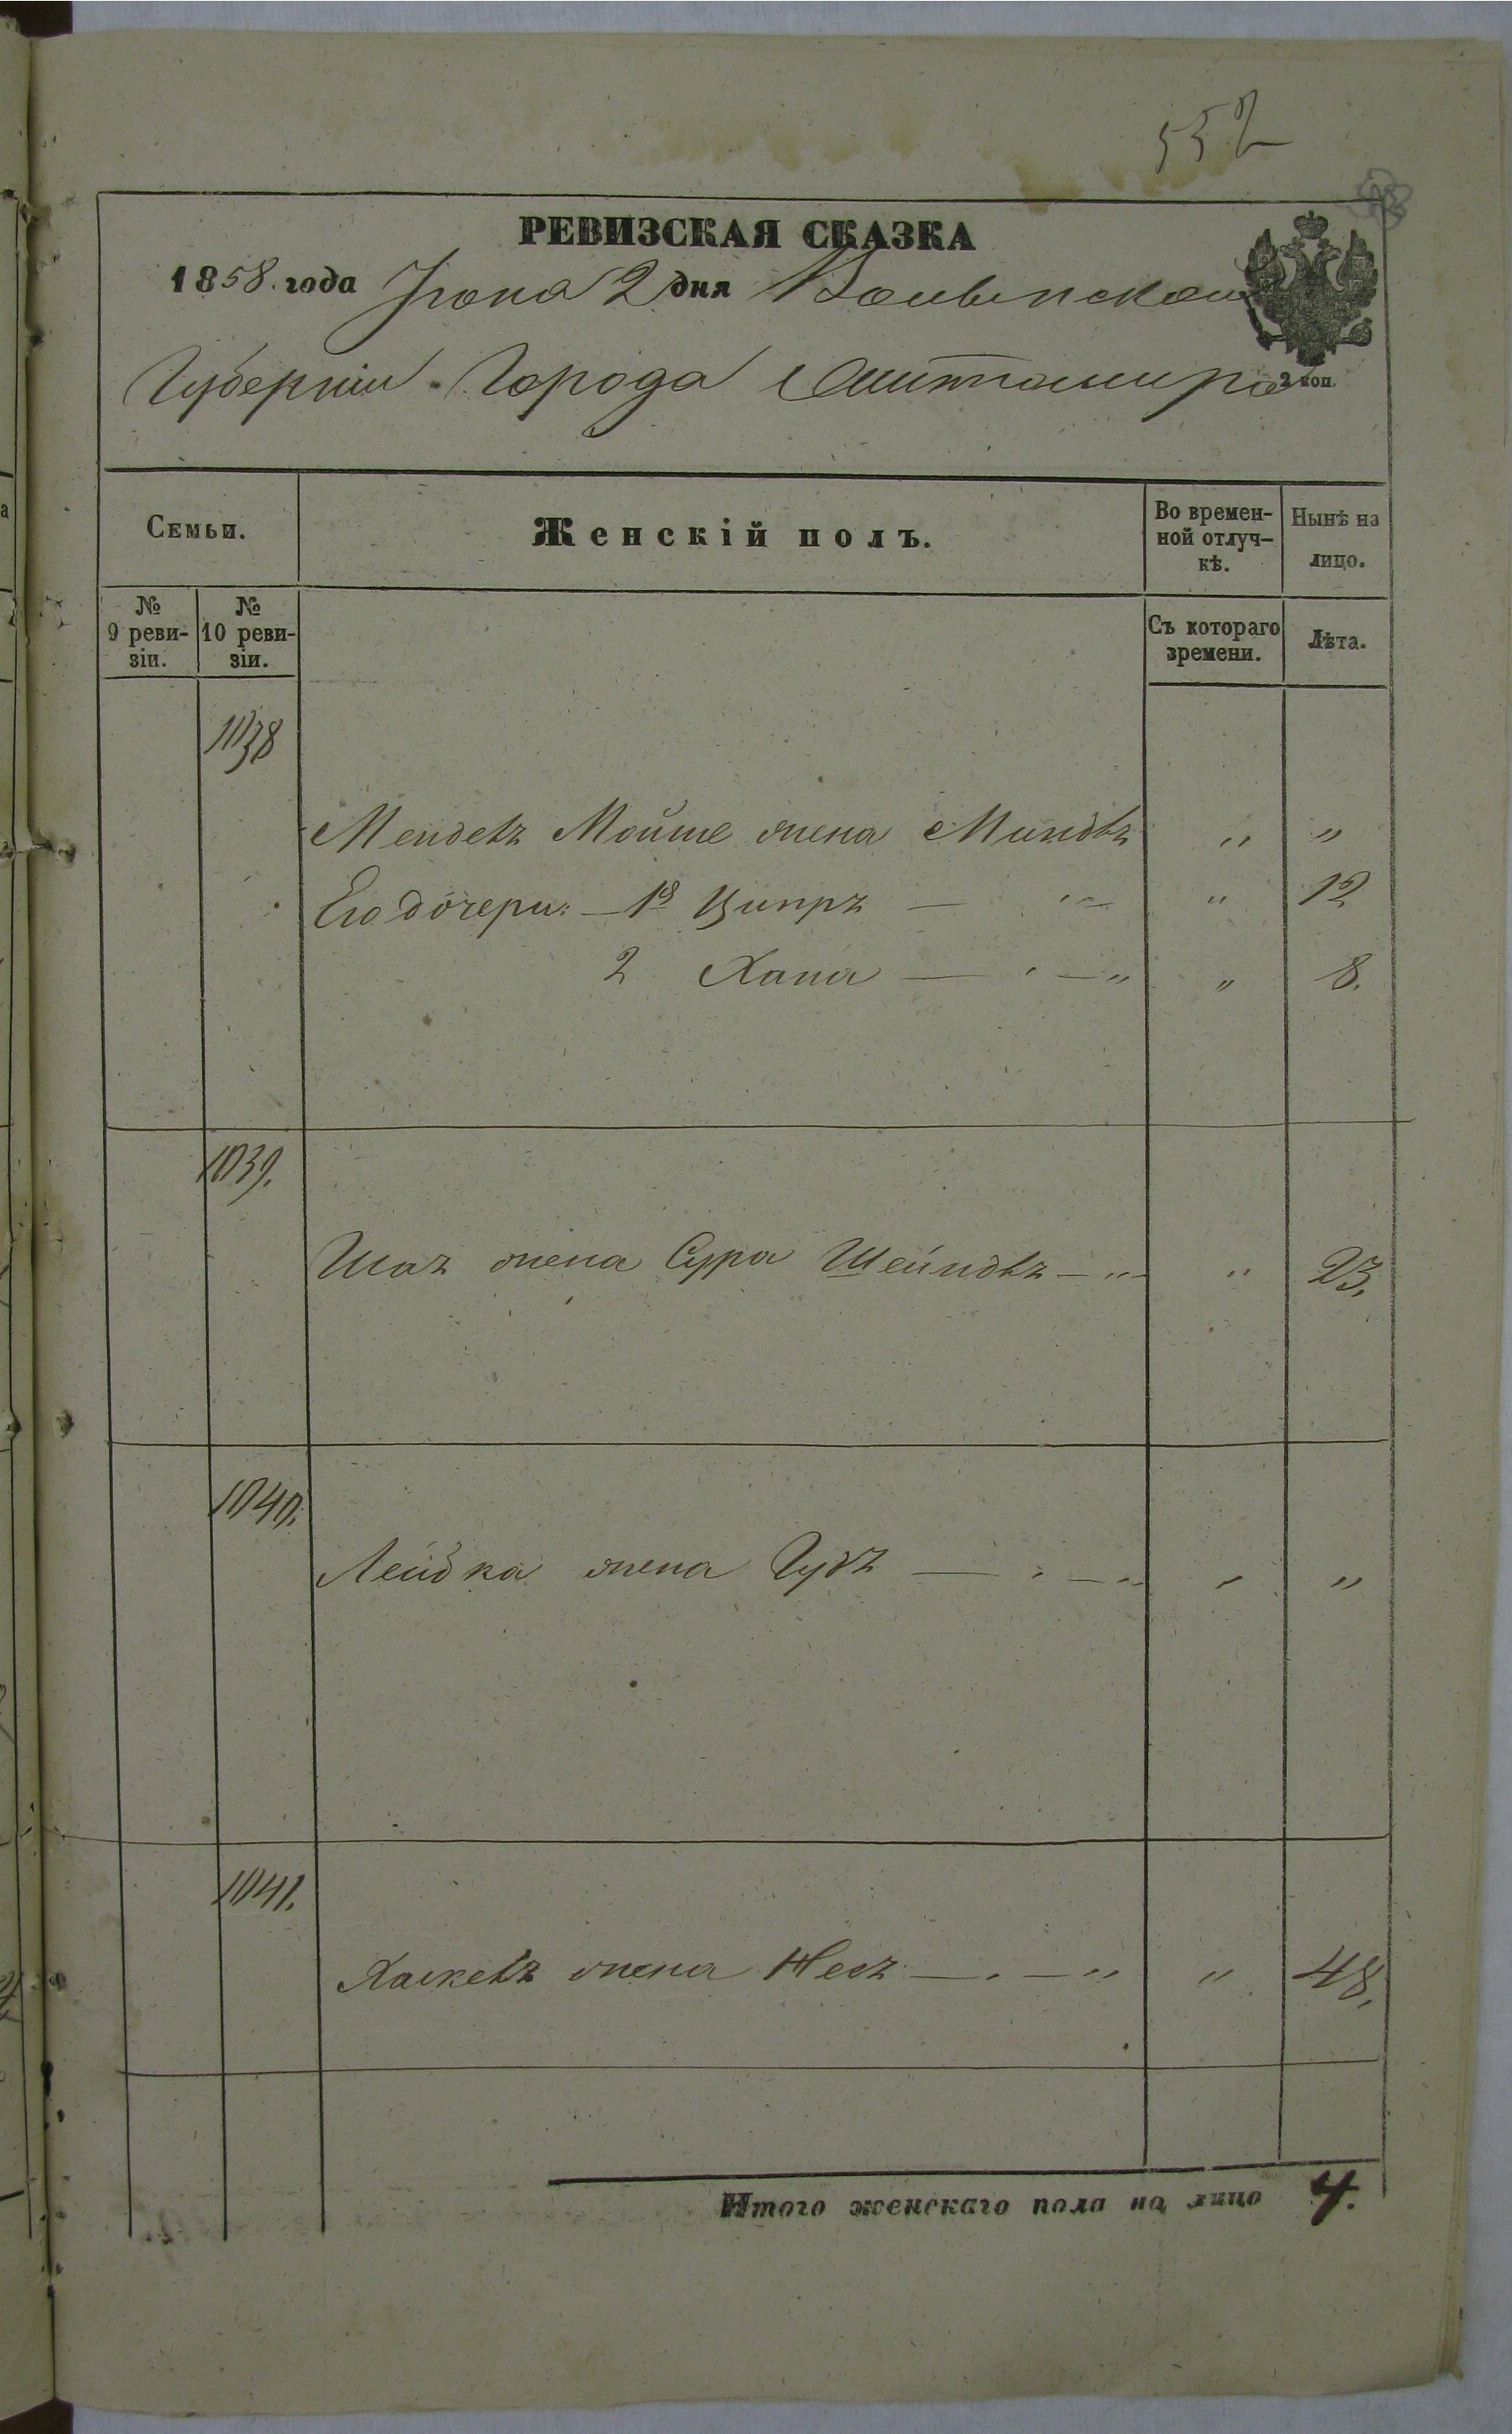 552
РЕВИЗСКАЯ СКАЗКА
1858. года Іюня 2 дня Волынской
Губерніи Города Житомира
2 коп.
Семьи.
Женскій полъ.
Во времен-
ной отлуч-
кѣ.
Нынѣ на
лицо.
№
9 реви-
зіи.
№
10 реви-
зіи.
Съ котораго
времени.
Лѣта.
1038
Мендель Мойше жена Миндль " "
Его дочери: 1я Ципръ " 12
2 Хана " 8.
1039.
Шаъ жена Сура Шейндль " 23.
1040.
Лейбка жена " "
1041.
Хаскель жена Несъ " 48.
Итого женскаго пола на лицо 4.